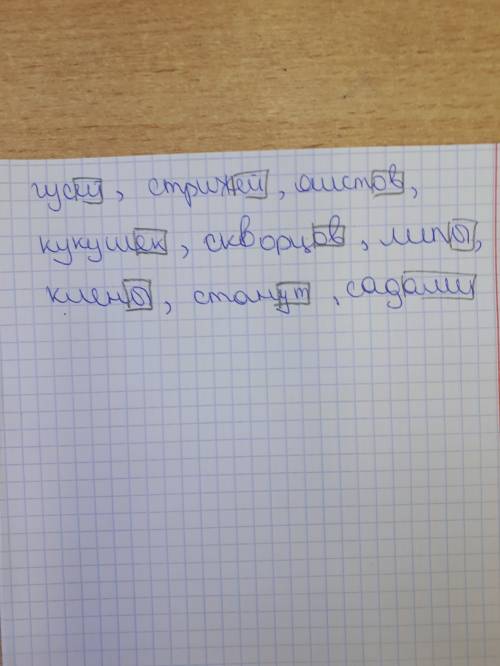 гуси, стрижей, аистов,
кукушек, скворцов, липы,
клены, станут, садами